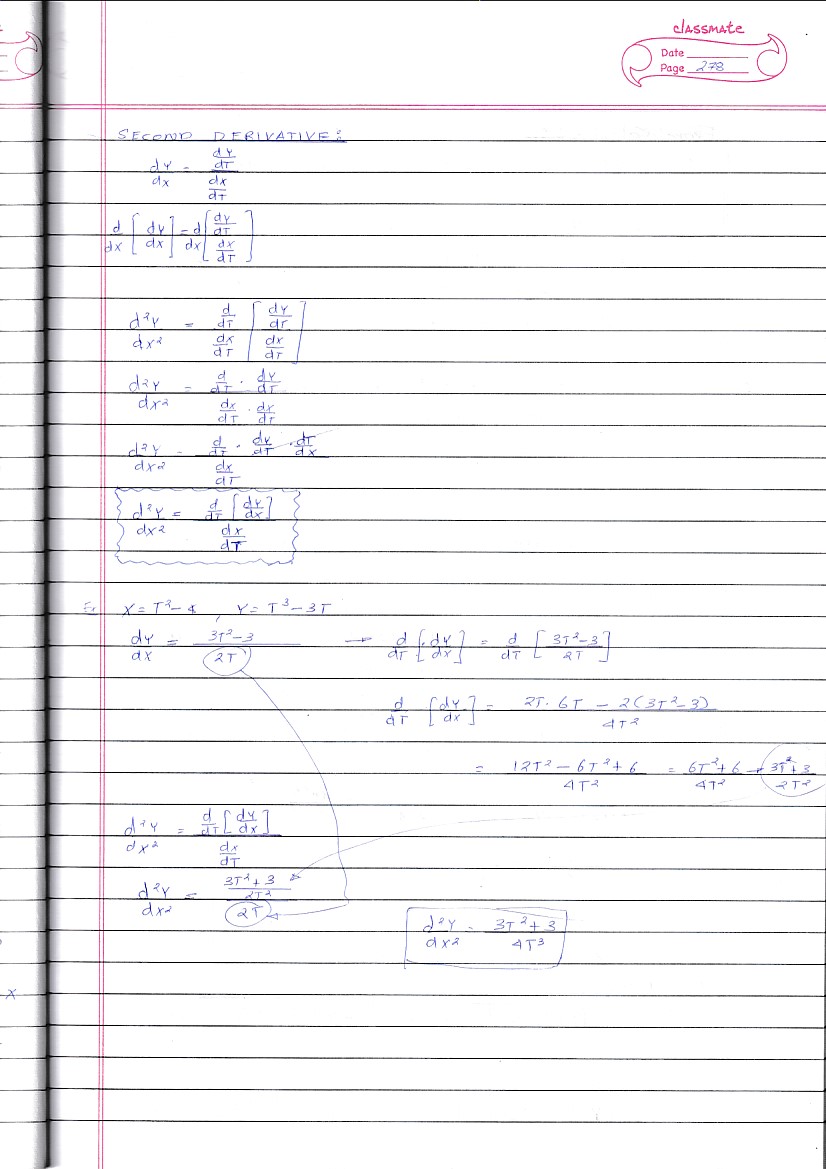 classmate
Date
Page 278
SECOND DERIVATIVE:
dY/dx = (dY/dT)/(dx/dT)
d/dx [dY/dx] = d/dx [(dY/dT)/(dx/dT)]
d²Y/dx² = (d/dT)/(dx/dT) [(dY/dT)/(dx/dT)]
d²Y/dx² = (d/dT · dY/dT)/(dx/dT · dx/dT)
d²Y/dx² = (d/dT · dY/dT · dT/dx)/(dx/dT)
d²Y/dx² = (d/dT [dY/dx])/(dx/dT)
Ex X = T² - 4 , Y = T³ - 3T
dY/dx = (3T² - 3)/2T → d/dT [dY/dx] = d/dT [(3T² - 3)/2T]
d/dT [dY/dx] = (2T · 6T - 2(3T² - 3))/4T²
= (12T² - 6T² + 6)/4T² = (6T² + 6)/4T² → (3T² + 3)/2T²
d²Y/dx² = (d/dT [dY/dx])/(dx/dT)
d²Y/dx² = ((3T² + 3)/2T²)/2T
d²Y/dx² = (3T² + 3)/4T³
x